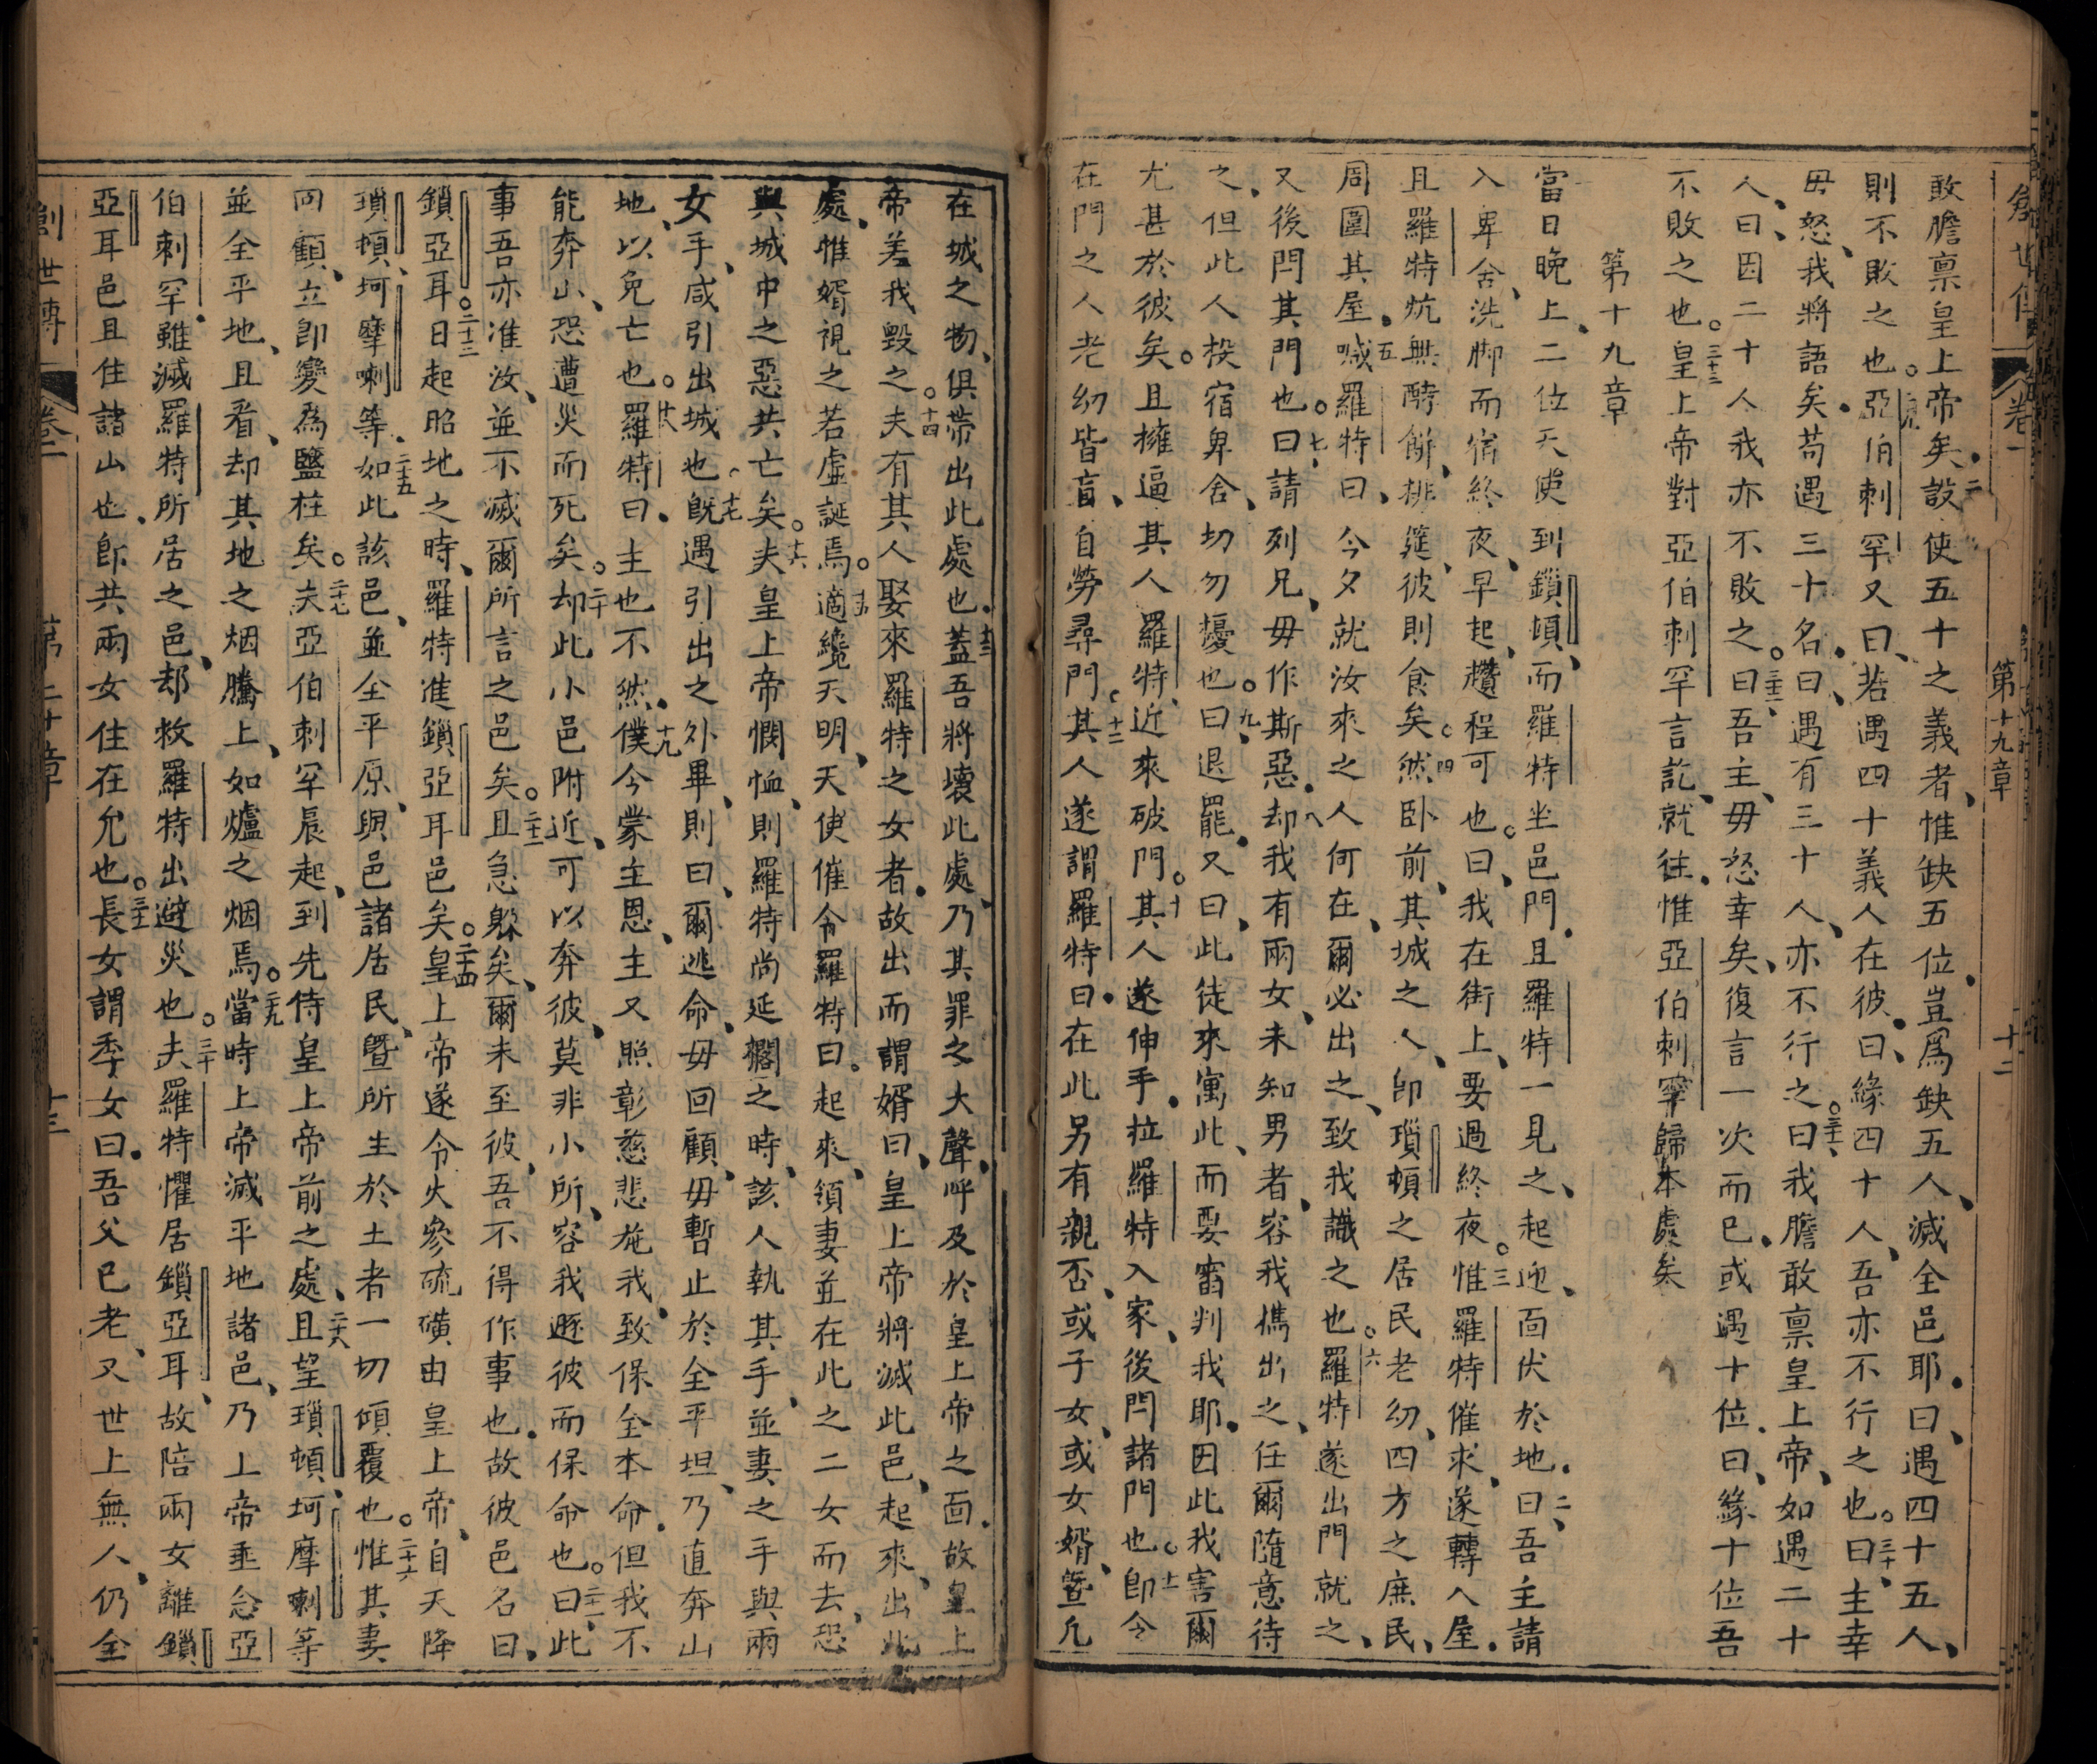 創世傳 卷一 第十九章 十二
敢膽禀皇上帝矣設使五十之義者惟缺五位豈爲缺五人滅全邑耶曰遇四十五人
則不敗之也亞伯刺罕又曰若遇四十義人在彼曰緣四十人吾亦不行之也三十曰主幸
毋怒我將語矣苟遇三十名曰遇有三十人亦不行之曰我膽敢禀皇上帝如遇二十
人曰因二十人我亦不敗之曰吾主毋怒幸矣復言一次而已或遇十位曰緣十位吾
不敗之也三十三皇上帝對亞伯刺罕言訖就往惟亞伯刺罕歸本處矣
第十九章
當日晚上二位天使到鎖頓而羅特坐邑門且羅特一見之起迎面伏於地曰二吾主請
入卑舍洗脚而宿終夜早起趲程可也曰我在街上要過終夜三惟羅特催求遂轉入屋
且羅特炕無酵餅排筵彼則食矣四然卧前其城之人卽瑣頓之居民老幼四方之庶民
周圍其屋五喊羅特曰今夕就汝來之人何在爾必出之致我識之也六羅特遂出門就之
又後閂其門也七曰請列兄毋作斯惡八却我有兩女未知男者容我携出之任爾隨意待
之但此人投宿卑舍切勿擾也九曰退罷又曰此徒來寓此而要審判我耶因此我害爾
尤甚於彼矣且擁逼其人羅特近來破門十其人遂伸手拉羅特入家後閂諸門也十一卽令
在門之人老幼皆盲自勞尋門十二其人遂謂羅特曰在此另有親否或子女或女婿曁凡
在城之物俱帶出此處也十三蓋吾將壞此處乃其罪之大聲呼及於皇上帝之面故皇上
帝差我毀之十四夫有其人娶來羅特之女者故出而謂婿曰皇上帝將滅此邑起來出此
處惟婿視之若虛誕焉十五適纔天明天使催令羅特曰起來領妻並在此之二女而去恐
與城中之惡共亡矣十六夫皇上帝憫恤則羅特尚延擱之時該人執其手並妻之手與兩
女手咸引出城也十七旣遇引出之外畢則曰爾逃命毋回顧毋暫止於全平坦乃直奔山
地以免亡也十八羅特曰主也不然十九僕今蒙主恩主又照彰慈悲施我致保全本命但我不
能奔山恐遭災而死矣二十却此小邑附近可以奔彼莫非小所容我遯彼而保命也二十一曰此
事吾亦准汝並不滅爾所言之邑矣二十二且急躱矣爾未至彼吾不得作事也故彼邑名曰
鎖亞耳二十三日起昭地之時羅特進鎖亞耳邑矣二十四皇上帝遂令火參硫磺由皇上帝自天降
瑣頓坷摩喇等二十五如此該邑並全平原與邑諸居民曁所生於土者一切傾覆也二十六惟其妻
向顧立卽變爲鹽柱矣二十七夫亞伯刺罕辰起到先侍皇上帝前之處二十八且望瑣頓坷摩喇等
並全平地且看却其地之烟騰上如爐之烟焉二十九當時上帝滅平地諸邑乃上帝垂念亞
伯刺罕雖滅羅特所居之邑却救羅特出避災也三十夫羅特懼居鎖亞耳故陪兩女離鎖
亞耳邑且住諸山也卽共兩女住在允也三十一長女謂季女曰吾父已老又世上無人仍全
創世傳 卷一 第二十章 十三